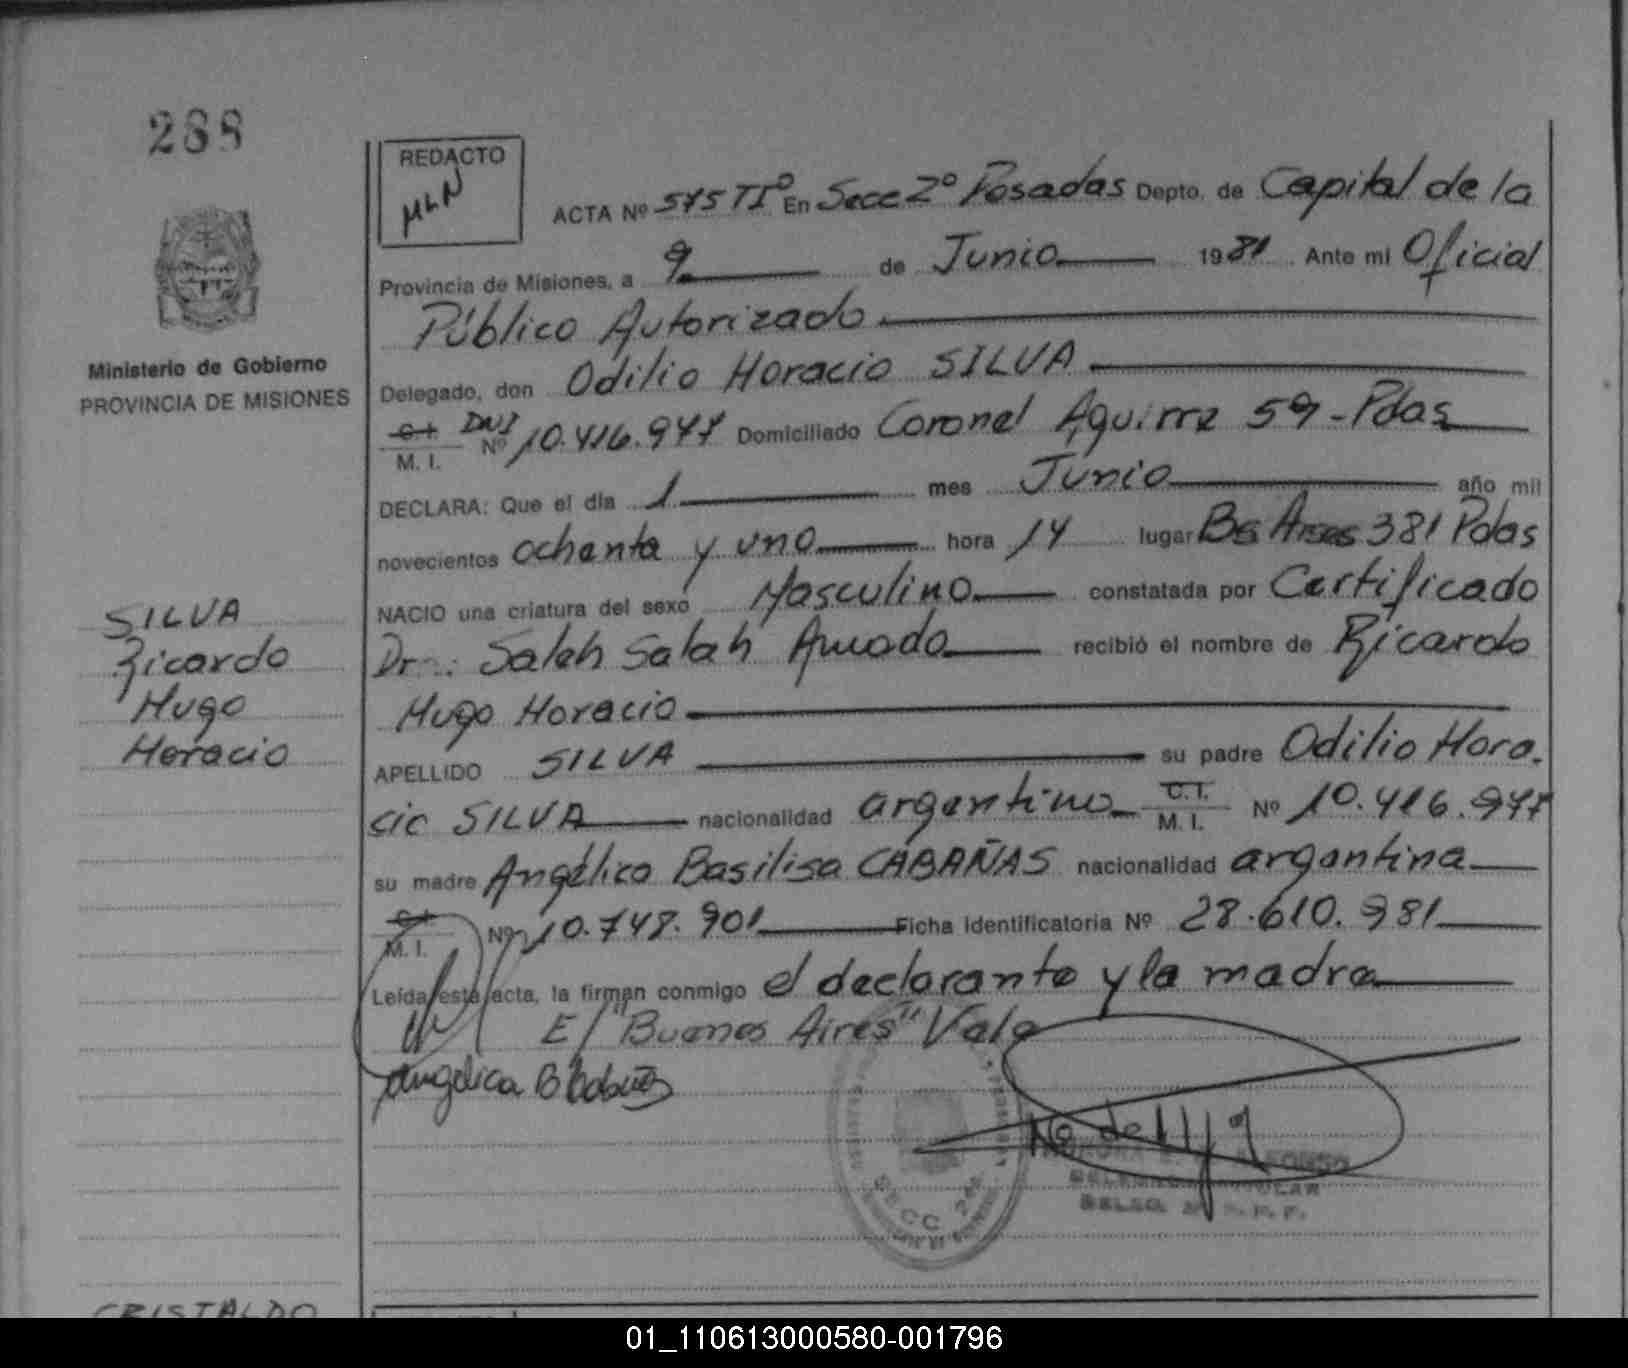 288
REDACTO
MLN
ACTA Nº 575 TIº En Secc 2º Posadas Depto. de Capital de la
Provincia de Misiones, a 9 de Junio 1981 Ante mi Oficial
Público Autorizado
Ministerio de Gobierno
PROVINCIA DE MISIONES
Delegado, don Odilio Horacio SILVA
C.I. M. I. DNI Nº 10.416.977 Domiciliado Coronel Aguirre 59-Pdas
DECLARA: Que el día 1 mes Junio año mil
novecientos ochenta y uno hora 14 lugar Bs Aires 381 Pdas
NACIO una criatura del sexo Masculino constatada por Certificado
Dr.: Saleh Salah Amado recibió el nombre de Ricardo
Hugo Horacio
SILVA
Ricardo
Hugo
Horacio
APELLIDO SILVA su padre Odilio Hora.
cio SILVA nacionalidad argentino C.I. M. I. Nº 10.416.977
su madre Angélica Basilisa CABAÑAS nacionalidad argentina
C.I. M. I. Nº 10.748.901 Ficha identificatoria Nº 28.610.981
Leída esta acta, la firman conmigo el declarante y la madre
E/"Buenos Aires" Vale
Angélica B Cabañas
SECC 2ª
CRISTALDO
01_110613000580-001796